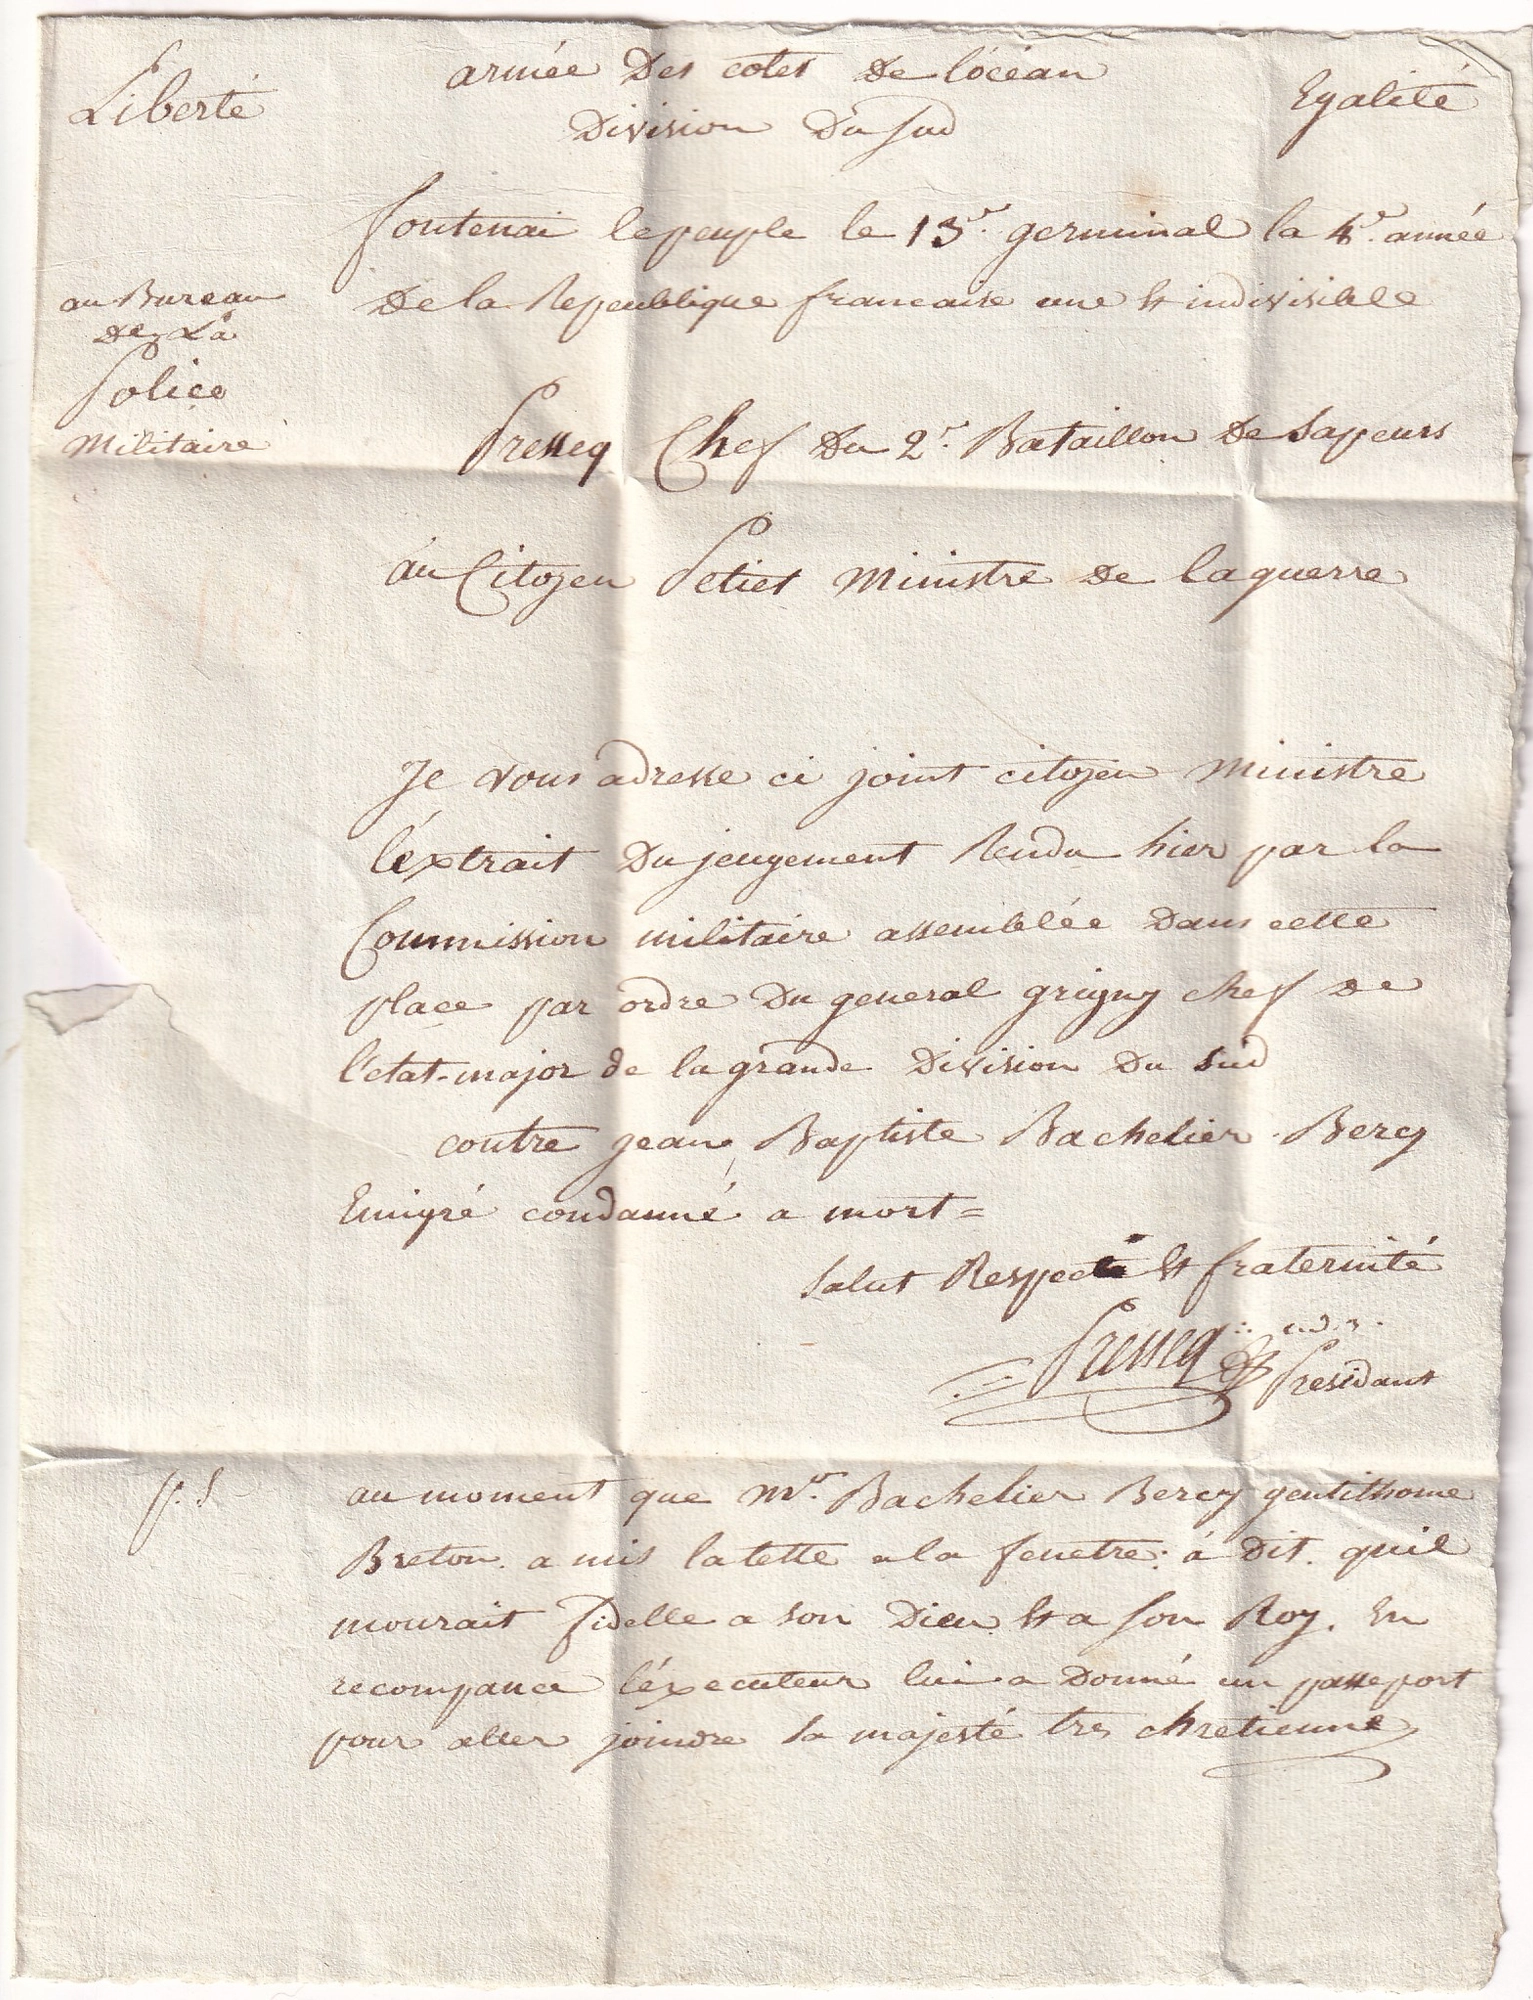 Liberté
armée Des cotes De l'océan
Egalité
Division Du sud
fontenai lepeuple le 13e. germinal la 4e. année
De la Republique francaise une et indivisible
au Bureau
de La
Police
Militaire
Presseq Chef Du 2e. Bataillon De Sapeurs
au Citoyen Petiet Ministre De laguerre
Je vous adresse ci joint citoyen Ministre
l'éxtrait Du jeugement Rendu hier par la
Commission militaire assemblée Dans cette
place par ordre Du general grigny chef De
l'etat-major de la grande Division Du Sud
contre jean Baptiste Bachelier Bercy
Emigré condanné a mort =
Salut Respect et fraternité
Presseq
Presidant
p. S
au moment que Mr. Bachelier Bercy gentilhome
Breton. a mis latette a la fenetre: à Dit. quil
mourait fidelle a Son Dieu et a Son Roy. En
recompance l'éxecuteur lui a Donné un passeport
pour aller joindre Sa majesté tres chretienne